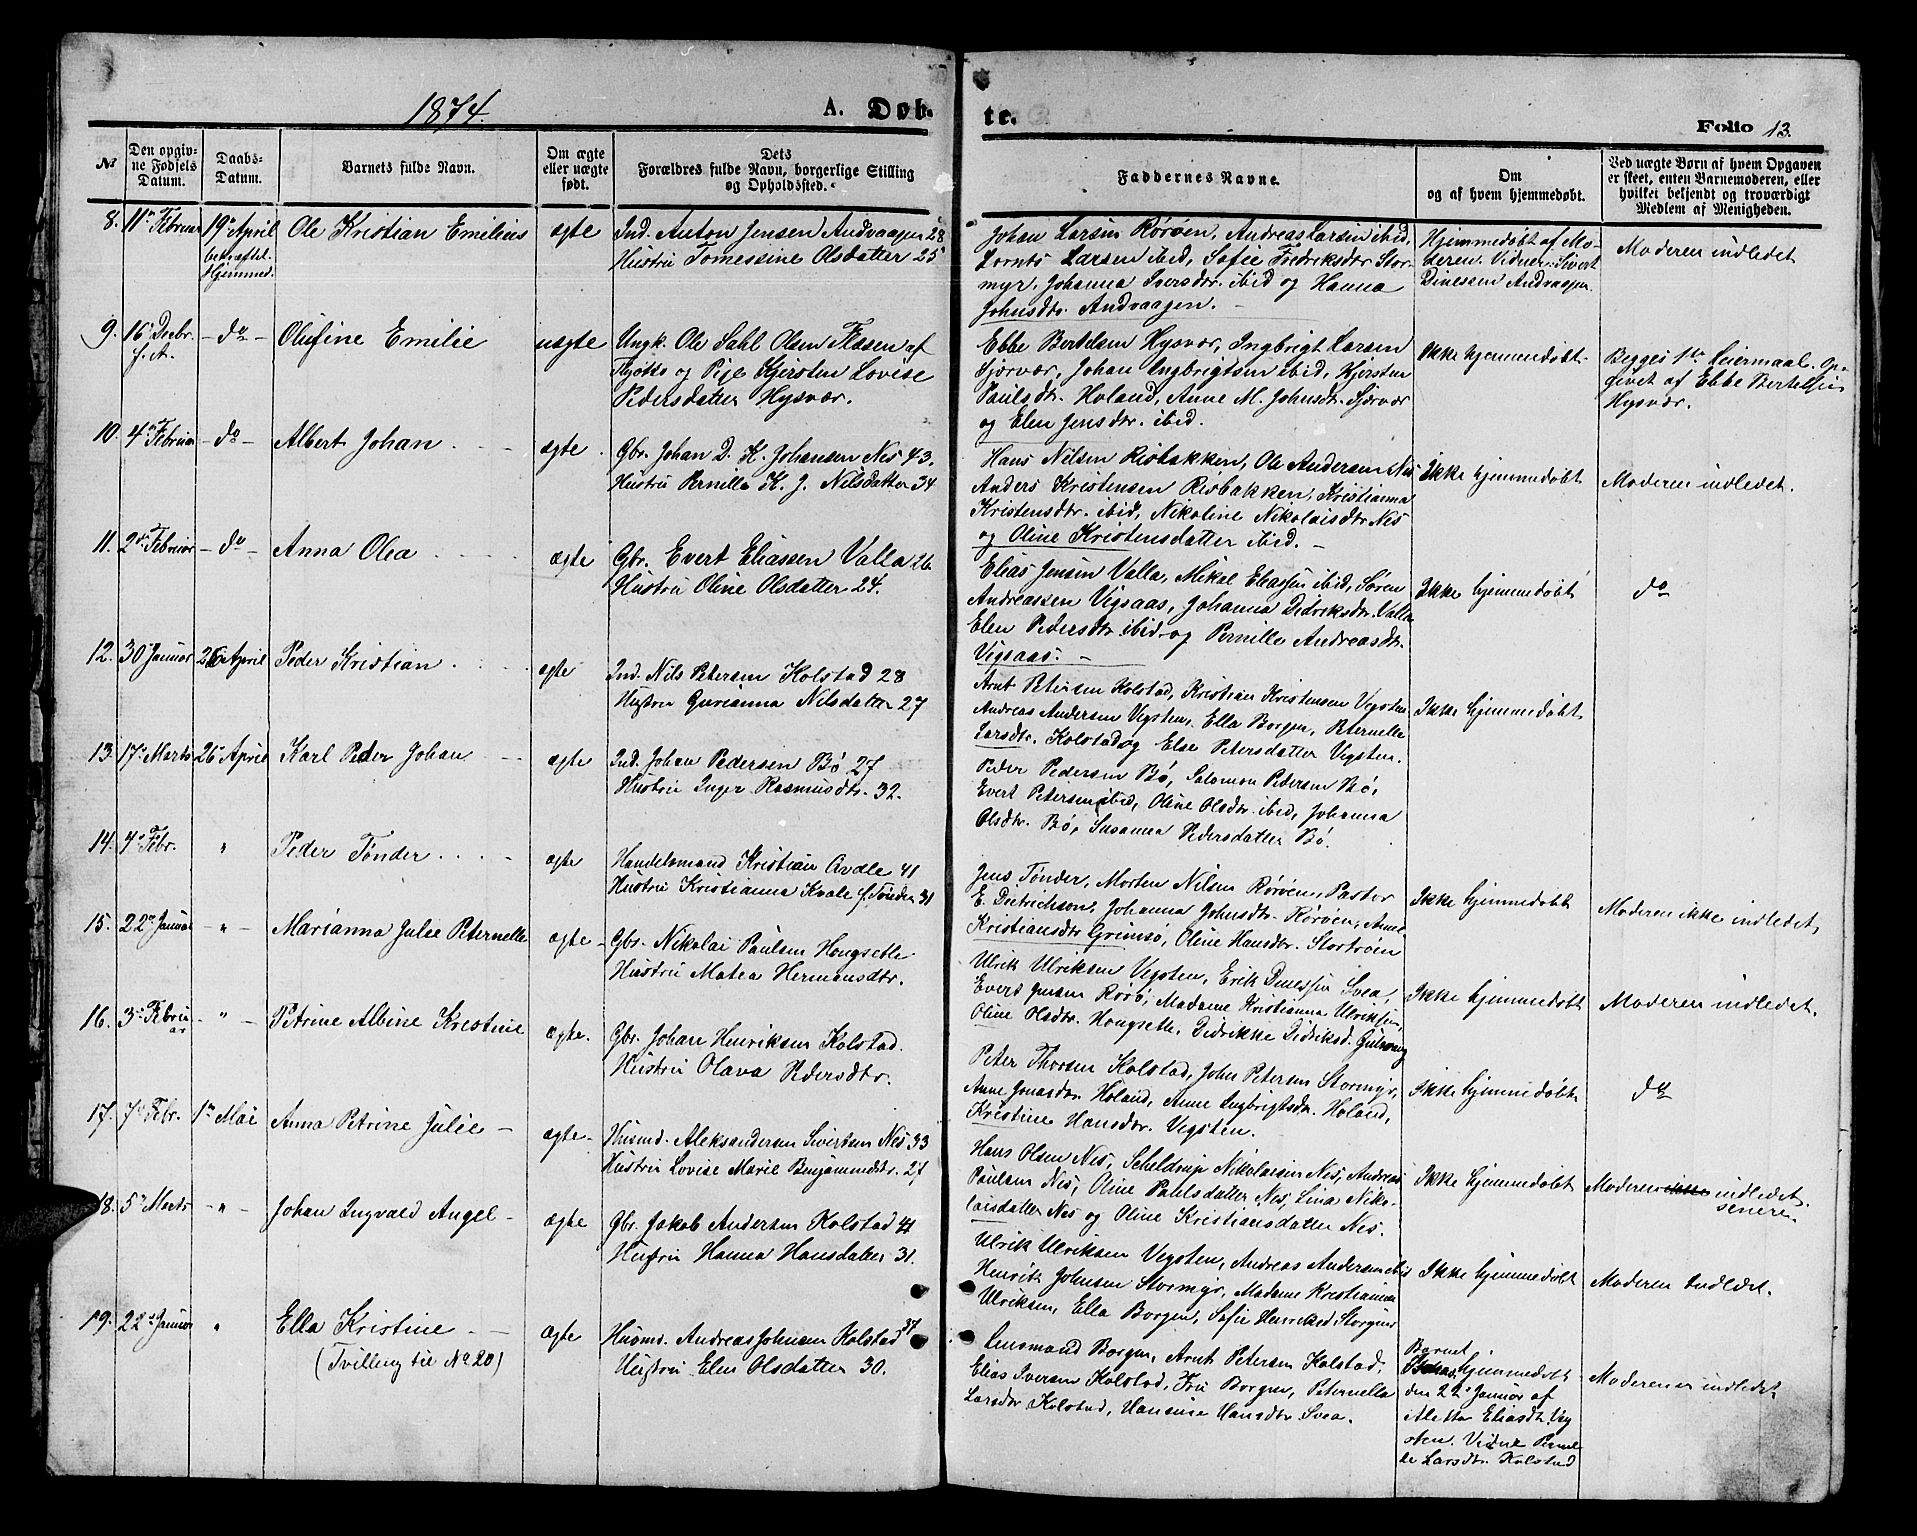 1874.
A. Døb-
te.
Folio 13.
№
Den opgiv-
ne Fødsels
Datum.
Daabs-
Datum.
Barnets fulde Navn.
Om ægte
eller uægte
født.
Dets
Forældres fulde Navn, borgerlige Stilling
og Opholdssted.
Faddernes Navne.
Om
og af hvem hjemmedøbt.
Ved uægte Børn af hvem Opgaven
er skeet, enten Barnemoderen, eller
hvilket bekjendt og troværdigt
Medlem af Menigheden.
8.
11te Februar
19de April
bekræftet
Hjemmed.
Ole Kristian Emilius
ægte
Ind. Anton Jensen Andvaagen 28
Hustru Tomessine Olsdatter 25
Johan Larsen Rørøen, Andreas Larsen ibid,
Lornts Larsen ibid, Sofie Fredriksdtr Stor-
myr, Johanna Iversdtr. ibid og Hanna
Johnsdtr. Andvaagen. -
Hjemmedøbt af Mo-
deren. Vidner: Sivert
Dinessen Andvaagen.
Moderen indledet
9.
16de Decbr.
f. A.
- do -
Olufine Emilie
uægte
Ungk. Ole Sahl Olsen Flessen af
Tjøtto og Pige Kjersten Lovise
Pedersdatter Hysvær.
Ebbe Bertelsen Hysvær, Ingbrigt Larsen
Sjærvær, Johan Ingbrigtsen ibid, Kjersten
Paulsdt. Holand, Anne M. Johnsdt. Sjærvær
og Elen Jensdtr. ibid.
Ikke hjemmedøbt
Begges 1ste Leiermaal. Op-
givet af Ebbe Bertelsen
Hysvær.
10.
4de Februar
- do -
Albert Johan
ægte
Gbr. Johan D. K. Johansen Nes 43.
Hustru Pernille K. J. Nilsdatter 34
Hans Nilsen Risbakken, Ole Andersen Nes
Anders Kristensen Risbakken, Kristianna
Kristensdtr. ibid, Nikoline Nikolaisdtr Nes
og Oline Kristensdatter ibid. -
Ikke hjemmedøbt
Moderen indledet.
11.
2den Februar
- do -
Anna Olea
ægte
Gbr. Evert Eliassen Valla 26
Hustru Oline Olsdatter 24.
Elias Jensen Valla, Mikal Eliassen ibid, Søren
Andreassen Vigsaas, Johanna Didriksdtr. Valla
Elen Pedersdtr ibid og Pernille Andreasdtr.
Vigsaas. -
Ikke hjemmedøbt
do
12.
30 Januar
26 April
Peder Kristian
ægte
Ind. Nils Petersen Kolstad 28
Hustru Gurianna Nilsdatter 27
Arnt Petersen Kolstad, Kristian Kristensen Vegsten
Andreas Andersen Vegsten, Ella Borgen, Peternelle
Larsdtr. Kolstad og Else Petersdatter Vegsten.
Ikke hjemmedøbt
13.
17de Marts
26de April
Karl Peder Johan
ægte
Ind. Johan Pedersen Bø 27
Hustru Inger Rasmusdtr. 32.
Peder Pedersen Bø, Salomon Pedersen Bø,
Evert Petersen ibid, Oline Olsdtr. ibid, Johanna
Olsdtr. Bø, Susanna Pedersdatter Bø.
14.
4de Febr.
"
Peder Tønder
ægte
Handelsmand Kristian Qvale 41
Hustru Kristianna Kvale f. Tønder 31
Jens Tønder, Morten Nilsen Rørøen, Pastor
E. Dietrichson, Johanna Johnsdtr. Rørøen, Anne
Kristiansdtr Grimsø, Oline Hansdtr. Stortrøen
Ikke hjemmedøbt
Moderen ikke indledet,
15.
22de Januar
- " -
Marianna Julse Peternelle
ægte
Gbr. Nikolai Paulsen Hongsetle
Hustru Matea Hermansdtr.
Ulrik Ulriksen Vegsten, Erik Dinessen Svea,
Evert Jensen Rørø, Madame Kristianna Ulriksen,
Oline Olsdtr. Hongseth, Didrikke Didriksd.
Ikke hjemmedøbt
Moderen indledet.
16.
3die Febru-
ar
- " -
Petrine Albine Kristine
ægte.
Gbr. Johan Henriksen Kolstad.
Hustru Olava Pedersdtr.
Peter Thorsen Kolstad, John Petersen Stormyr,
Anne Jonasdtr Holand, Anne Ingbrigtsdtr. Holand,
Kristine Hansdtr. Vegsten.
Ikke hjemmedøbt
do
17.
7de Febr.
1ste Mai
Anna Petrine Julie -
ægte -
Husmd. Aleksandersen Sivertsen Nes 33
Hustru Lovise Marie Benjaminsdtr. 27
Hans Olsen Nes, Scheldrup Nikolaisen Nes, Andreas
Paulsen Nes, Oline Paulsdatter Nes, Lina Niko-
laisdatter Nes og Oline Kristiansdatter Nes.
Ikke hjemmedøbt
Moderen ikke indledet.
senere
18.
5te Marts
- " -
Johan Ingvald Angel -
ægte
Gbr. Jakob Andersen Kolstad 41
Hustru Hanna Hansdatter 31.
Ulrik Ulriksen Vegsten, Andreas Andersen ibid
Henrik Johnsen Stormyr, Madame Kristianna
Ulriksen, Ella Borgen, Sofie Henriksd Stormyr
Ikke hjemmedøbt
Moderen indledet.
19.
22de Januar
"
Ella Kristine -
(Tvilling til No 20)
ægte
Husmd. Andreas Johnsen Kolstad 37
Hustru Elen Olsdatter 30.
Lensmand Borgen, Arnt Petersen Kolstad,
Elias Iversen Kolstad, Fru Borgen, Peternella
Larsdtr Kolstad, Hansine Hansdtr Svea.
Barnet
hjemmedøbt
den 22de Januar af
Aletta Eliasdt. Veg
sten. Vidne Pernel
le Larsdtr. Kolstad
Moderen er indledet